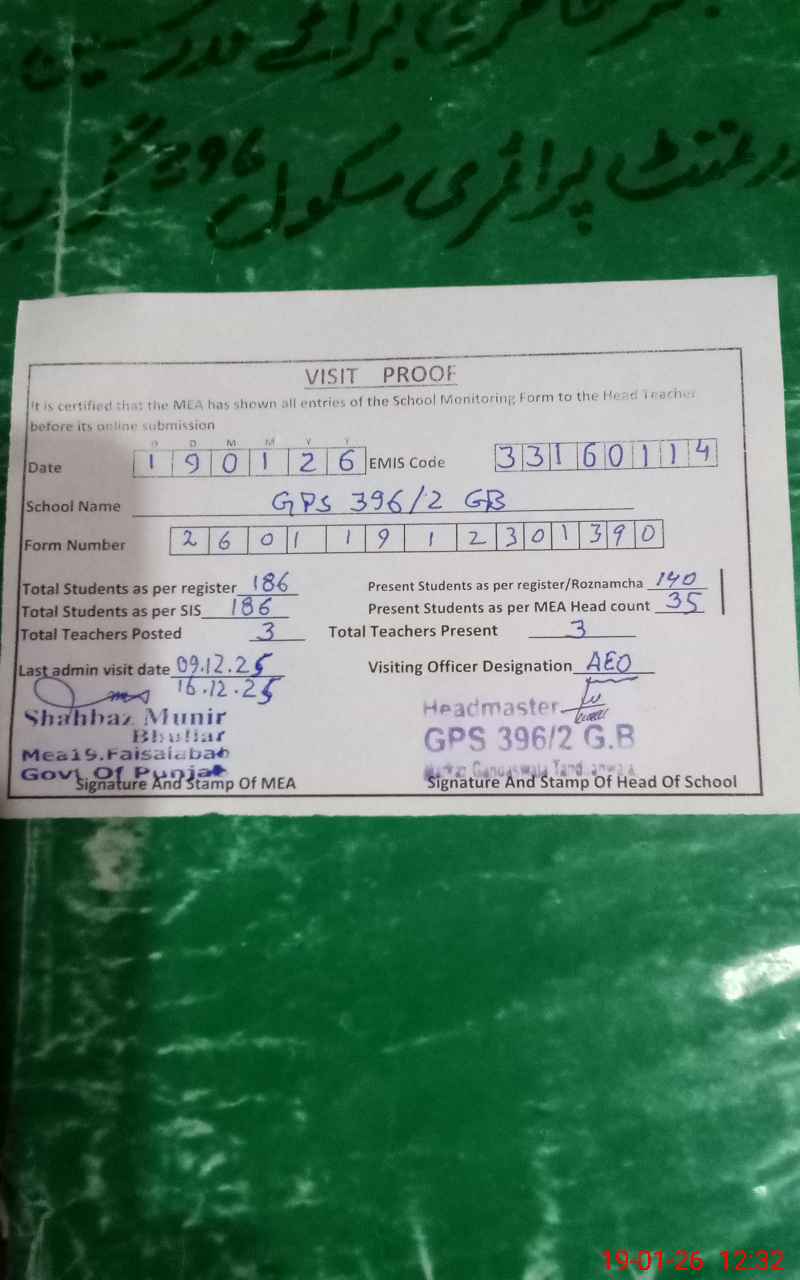 برائے مدرسین
گورنمنٹ پرائمری سکول 296 گ ب
VISIT PROOF
It is certified that the MEA has shown all entries of the School Monitoring Form to the Head Teacher
before its online submission
D D M M Y Y
Date 1 9 0 1 2 6 EMIS Code 3 3 1 6 0 1 1 4
School Name GPS 396/2 GB
Form Number 2 6 0 1 1 9 1 2 3 0 1 3 9 0
Total Students as per register 186 Present Students as per register/Roznamcha 140
Total Students as per SIS 186 Present Students as per MEA Head count 35
Total Teachers Posted 3 Total Teachers Present 3
Last admin visit date 09.12.25 Visiting Officer Designation AEO
16.12.25
Shahbaz Munir Headmaster
Bhullar GPS 396/2 G.B
Mea19.Faisalabad
Govt Of Punjab
Signature And Stamp Of MEA Signature And Stamp Of Head Of School
19-01-26 12:32